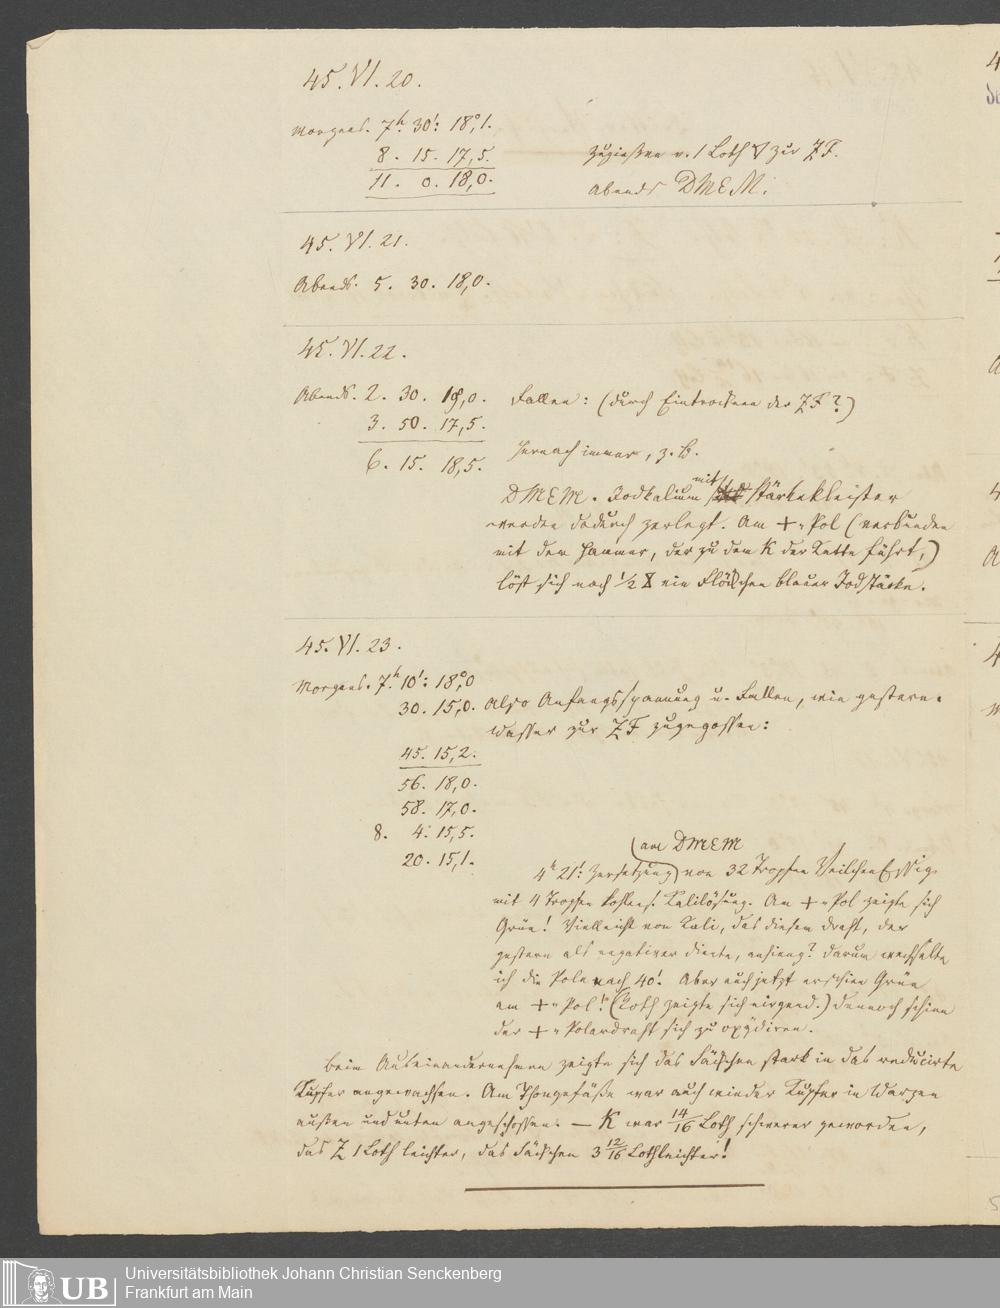 45. VI. 20.
Morgens. 7h. 30': 18°,1.
8. 15. 17,5. Zugießen v. 1 Loth zur ZF.
11. 0. 18,0. Abends DMEM.
45. VI. 21.
Abends. 5. 30. 18,0.
45. VI. 22.
Abends. 2. 30. 19,0. Fallen: (durch Eintrocknen der ZF?)
3. 50. 17,5.
6. 15. 18,5. Hernach immer, z. B.
DMEM. Jodkalium mit Stärkekleister
werden dadurch zerlegt. Am + Pol (verbunden
mit dem Hammer, der zu dem K der Kette führt,)
löst sich nach 1/2 ein Fläschchen blauer Jodstärke.
45. VI. 23.
Morgens. 7h. 10': 18°,0
30. 15,0. Also Anfangsspannung u. Fallen, wie gestern.
Wasser zur ZF zugegossen:
45. 15,2.
56. 18,0.
58. 17,0.
8. 4. 15,5.
20. 15,1.
(am DMEM
4h 21': Zersetzung) von 32 Tropfen VeilchenEssig
mit 4 Tropfen kohlens. Kalilösung. Am + Pol zeigte sich
Grün! Vielleicht von Kali, das diesem Draht, der
gestern als negativer diente, anhieng? Darum wechselte
ich die Pole nach 40'. Aber auch jetzt erschien Grün
am + Pol! (Roth zeigte sich nirgend.) Dennoch schien
der + Polardraht sich zu oxydiren.
Beim Auseinandernehmen zeigte sich das Säckchen stark in das reducirte
Kupfer angewachsen. Am Thongefäße war auch wieder Kupfer in Warzen
außen und unten angeschossen. — K war 14/16 Loth schwerer geworden,
das Z 1 Loth leichter, das Säckchen 3 12/16 Loth leichter!
Universitätsbibliothek Johann Christian Senckenberg
Frankfurt am Main
UB